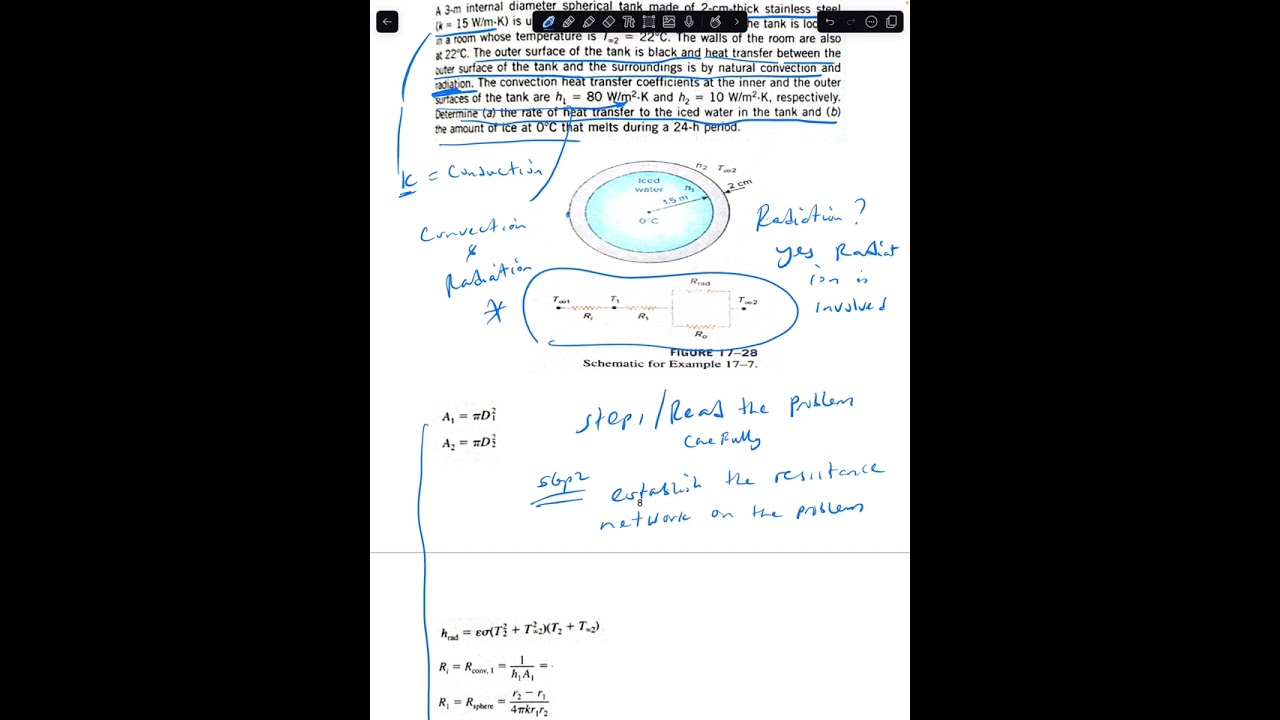 A 3-m internal diameter spherical tank made of 2-cm-thick stainless steel
(k = 15 W/m·K) is u he tank is loc
in a room whose temperature is T∞2 = 22°C. The walls of the room are also
at 22°C. The outer surface of the tank is black and heat transfer between the
outer surface of the tank and the surroundings is by natural convection and
radiation. The convection heat transfer coefficients at the inner and the outer
surfaces of the tank are h1 = 80 W/m²·K and h2 = 10 W/m²·K, respectively.
Determine (a) the rate of heat transfer to the iced water in the tank and (b)
the amount of ice at 0°C that melts during a 24-h period.
K = Conduction
Convection
&
Radiation
Iced
water
h1
1.5 m
0°C
h2 T∞2
2 cm
Radiation?
yes Radiat
ion is
involved
T∞1 T1 Rrad T∞2
Ri R1 Ro
FIGURE 17–28
Schematic for Example 17–7.
A1 = πD1²
A2 = πD2²
step1/Read the problem
carefully
step2 establish the resistance
network on the problem
8
hrad = εσ(T2² + T∞2²)(T2 + T∞2)
Ri = Rconv, 1 = 1/h1A1 =
R1 = Rsphere = r2 − r1/4πkr1r2